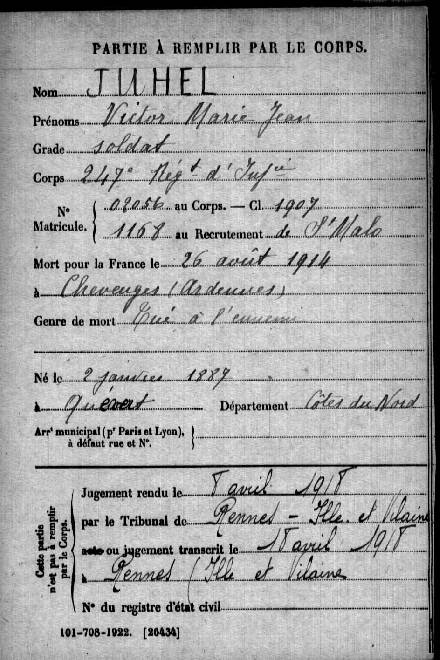 PARTIE À REMPLIR PAR LE CORPS.
Nom JUHEL
Prénoms Victor Marie Jean
Grade soldat
Corps 247e Régt d'Infie
N° Matricule. { 02056 au Corps. — Cl. 1907
1168 au Recrutement de St Malo
Mort pour la France le 26 août 1914
à Chevenges (Ardennes)
Genre de mort Tué à l'ennemi
Né le 2 janvier 1887
à Quévert Département Côtes du Nord
Arrt municipal (pr Paris et Lyon), à défaut rue et N°.
Cette partie n'est pas à remplir par le Corps.
Jugement rendu le 8 avril 1918
par le Tribunal de Rennes - Ille et Vilaine
acte ou jugement transcrit le 18 avril 1918
à Rennes (Ille et Vilaine
N° du registre d'état civil
101-708-1922. [26434]